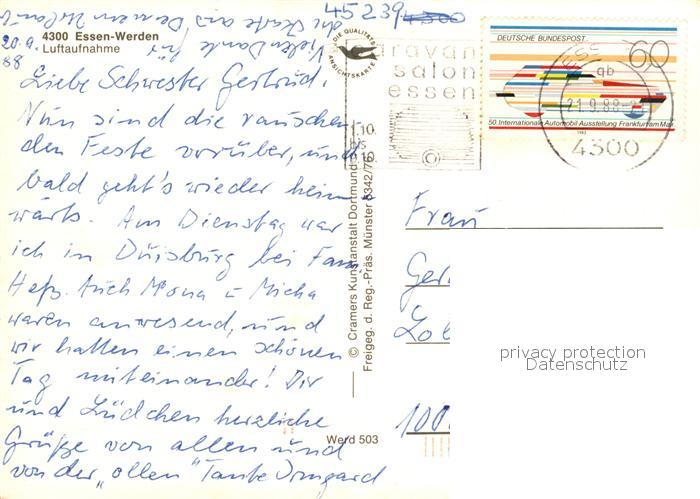 45 239 4300
Vielen Dank für
die Karte aus Deinem Urlaub
20.9.
88
4300 Essen-Werden
Luftaufnahme
Liebe Schwester Gertrud
Nun sind die rauschen-
den Feste vorüber, und
bald geht's wieder heim
wärts. Am Dienstag war
ich in Duisburg bei Fam.
Auch Mona u Micha
waren anwesend, und
wir hatten einen schönen
Tag miteinander! Dir
und Lüdchen herzliche
Grüße von allen und
von der „ollen" Tante Irmgard
DIE QUALITÄTS
ANSICHTSKARTE
© Cramers Kunstanstalt Dortmund
Freigeg. d. Reg.-Präs. Münster 6342/78
Werd 503
caravan
salon
essen
1.10.
bis
DEUTSCHE BUNDESPOST
60
50. Internationale Automobil-Ausstellung Frankfurt am Main
1983
ESS
gb
21.9.88
4300
Frau
Ger
100
privacy protection
Datenschutz